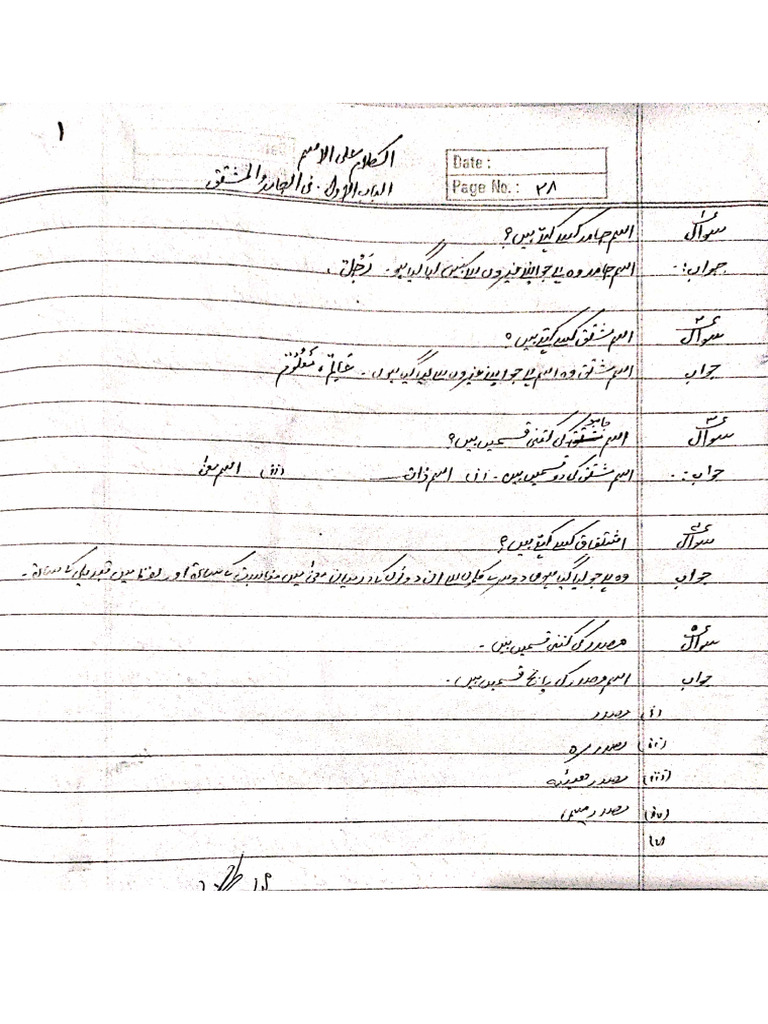 ۱
الکلام علی الاسم
Date :
الباب الاول . فی الجامد والمشتق
Page No. : ۲۸
سوال ۱ اسم جامد کسے کہتے ہیں؟
جواب:. اسم جامد وہ ہے جو اپنے غیروں سے نہیں لیا گیا ہو . رَجُلٌ .
سوال ۲ اسم مشتق کسے کہتے ہیں؟
جواب اسم مشتق وہ اسم ہے جو اپنے غیروں سے لیا گیا ہوں . عَالِمٌ ، مَعْلُوْمٌ
سوال ۳ اسم جامد کی کتنی قسمیں ہیں؟
جواب:. اسم مشتق کی دو قسمیں ہیں . (i) اسم ذات (ii) اسم معنیٰ
سوال ۴ اشتقاق کسے کہتے ہیں؟
جواب وہ ہے جو لیا گیا ہو دوسرے کلمہ سے ان دونوں کے درمیان معنیٰ میں مناسبت کے ساتھ اور لفظ میں تبدیلی کے ساتھ .
سوال ۵ مصدر کی کتنی قسمیں ہیں .
جواب اسم مصدر کی پانچ قسمیں ہیں .
(i) مصدر
(ii) مصدر مرہ
(iii) مصدر ھیئہ
(iv) مصدر میمی
(v)